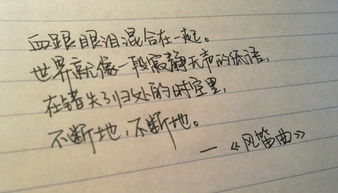 血跟眼泪混合在一起。
世界就像一段寂静无声的低语,
在错失了归处的时空里,
不断地,不断地。
—《风笛曲》